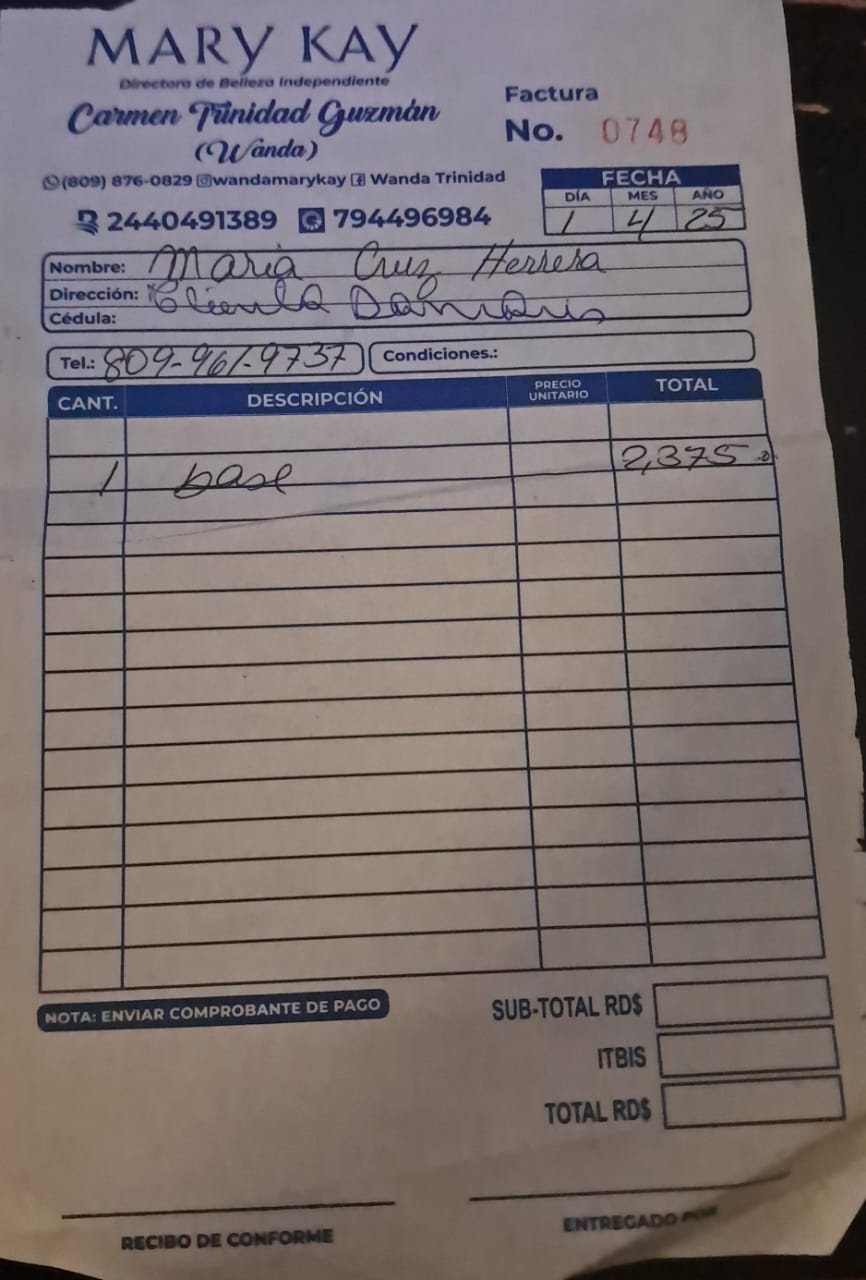 MARY KAY
Directora de Belleza Independiente
Carmen Trinidad Guzmán
(Wanda)
Factura
No. 0748
(809) 876-0829 wandamarykay Wanda Trinidad
2440491389 794496984
FECHA
DÍA MES AÑO
1 4 25
Nombre: Maria Cruz Herrera
Dirección: Clienta Damaris
Cédula:
Tel.: 809-961-9737 Condiciones.:
CANT. DESCRIPCIÓN PRECIO UNITARIO TOTAL
1 base 2,375.0
NOTA: ENVIAR COMPROBANTE DE PAGO
SUB-TOTAL RD$
ITBIS
TOTAL RD$
RECIBO DE CONFORME
ENTREGADO POR